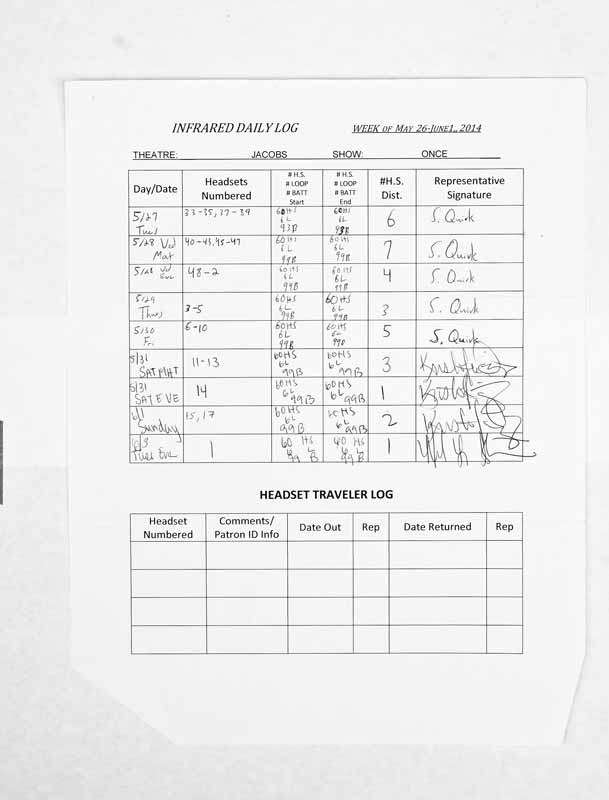 INFRARED DAILY LOG WEEK OF MAY 26-JUNE1,, 2014
THEATRE: JACOBS SHOW: ONCE
Day/Date Headsets Numbered # H.S. # LOOP # BATT Start # H.S. # LOOP # BATT End #H.S. Dist. Representative Signature
5/27 Tues 33-35, 37-39 60HS 6L 93B 60HS 6L 93B 6 S. Quirk
5/28 Wed Mat 40-43, 45-47 60HS 6L 99B 60HS 6L 99B 7 S. Quirk
5/28 Wd Eve 48-2 60HS 6L 99B 60HS 6L 99B 4 S. Quirk
5/29 Thurs 3-5 60HS 6L 99B 60HS 6L 99B 3 S. Quirk
5/30 Fri 6-10 60HS 6L 99B 60HS 6L 99B 5 S. Quirk
5/31 SAT MAT 11-13 60HS 6L 99B 60HS 6L 99B 3
5/31 SAT EVE 14 60HS 6L 99B 60HS 6L 99B 1
6/1 Sunday 15, 17 60HS 6L 99B 6L 99B 2
6/3 Tues Eve 1 60 HS 6 L 99 B HS 6 L 99 B 1
HEADSET TRAVELER LOG
Headset Numbered Comments/ Patron ID Info Date Out Rep Date Returned Rep